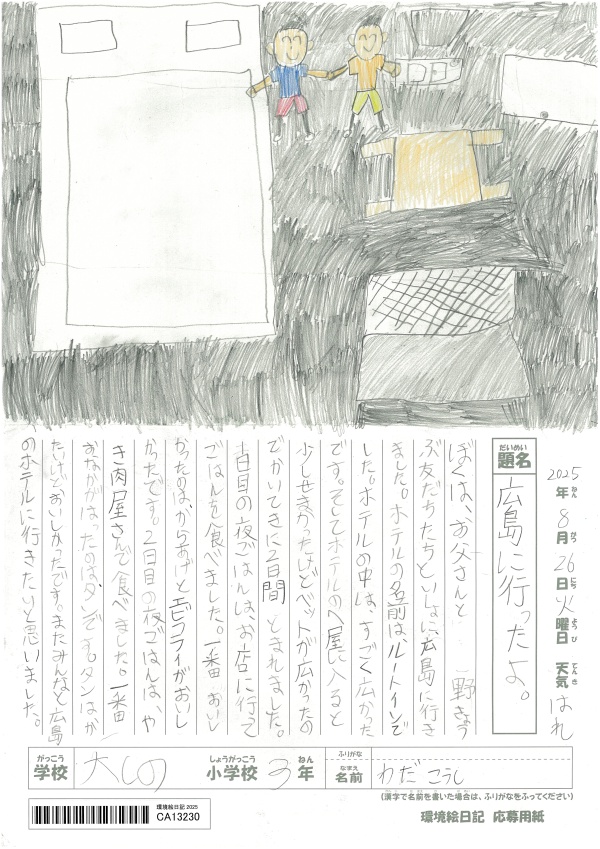 2025年8月26日火曜日 天気 はれ
ねん
がつ
にち
ようび
てんき
だいめい
題名
広島に行ったよ。
ぼくは、お父さんと 野きゅう
ぶ友だちたちといっしょに、広島に行き
ました。ホテルの名前はルートインで
した。ホテルの中は、すごく広かった
です。そしてホテルのへ屋に入ると
少しせまかったけどベットが広かったの
でかいてきに2日間とまれました。
1日目の夜ごはんは、お店に行って
ごはんを食べました。一番おいし
かったのは、からあげとエビフライがおいし
かったです。2日目の夜ごはんは、や
き肉屋さんで食べました。一番
おなががはったのは、タンです。タンはか
たいけどおいしかったです。またみんなと広島
のホテルに行きたいと思いました。
がっこう
学校
大しの
しょうがっこう
小学校
3
ねん
年
ふりがな
なまえ
名前
わだ こうし
(漢字で名前を書いた場合は、ふりがなをふってください)
環境絵日記 2025
CA13230
環境絵日記 応募用紙